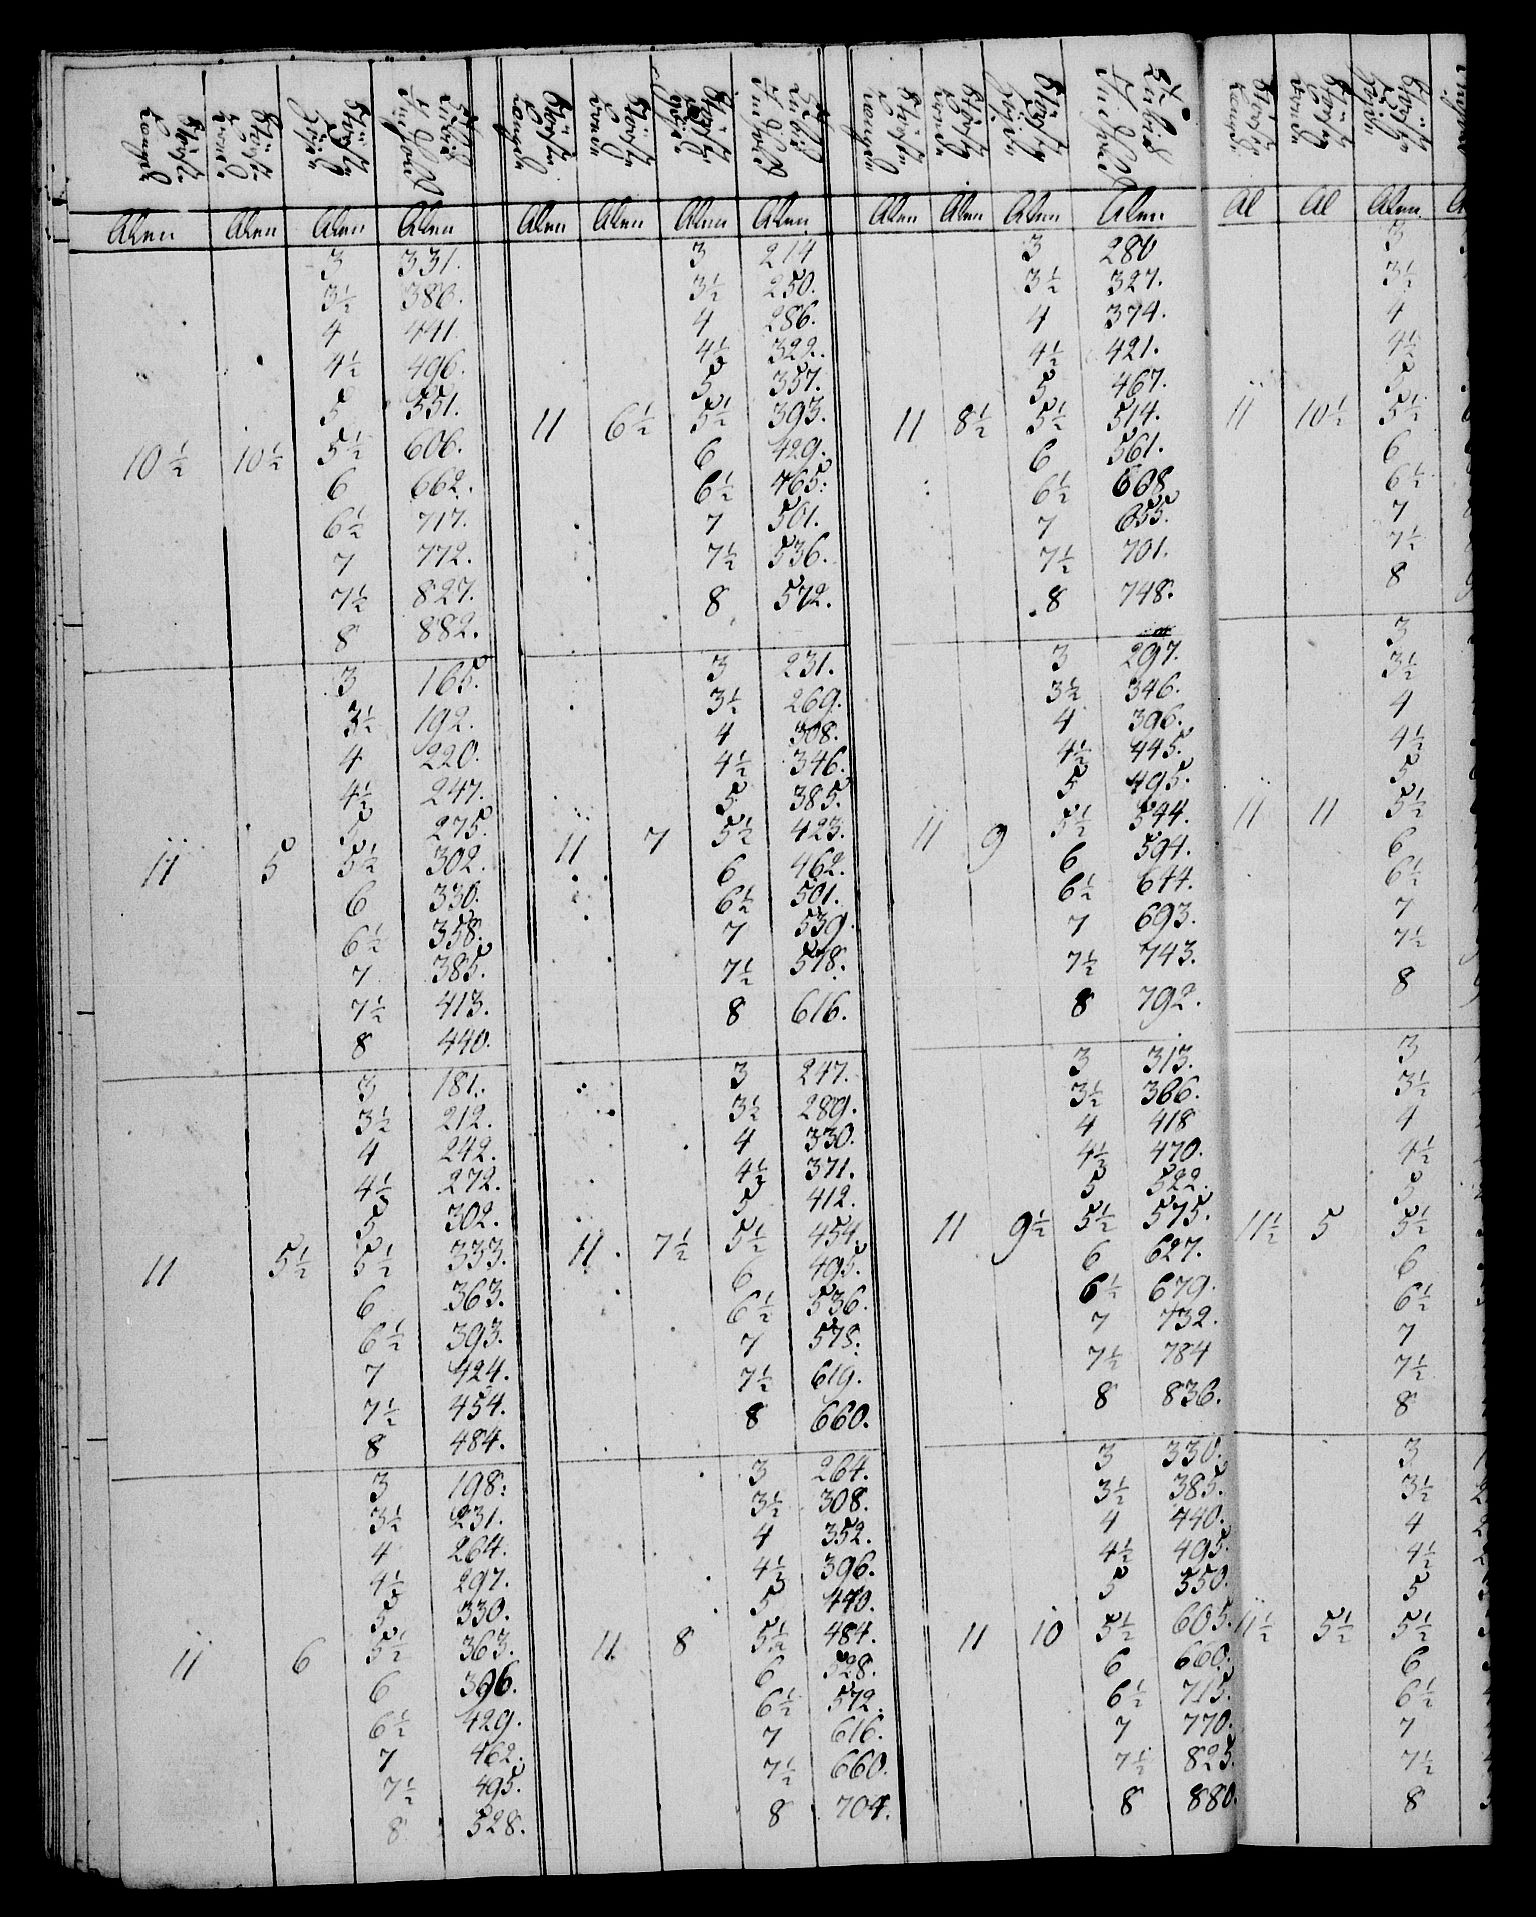 Alen Alen Alen Alen
3 331.
3½ 386.
4 441
4½ 496.
5 551.
10½ 10½ 5½ 606.
6 662.
6½ 717.
7 772.
7½ 827.
8 882.
3 165.
3½ 192.
4 220.
4½ 247.
5 275.
11 5 5½ 302.
6 330.
6½ 358.
7 385.
7½ 413.
8 440.
3 181.
3½ 212.
4 242.
4½ 272.
5 302.
11 5½ 5½ 333.
6 363.
6½ 393.
7 424.
7½ 454.
8 484.
3 198.
3½ 231.
4 264.
4½ 297.
5 330.
11 6 5½ 363.
6 396.
6½ 429.
7 462.
7½ 495.
8 528.
Alen Alen Alen Alen
3 214
3½ 250.
4 286.
4½ 322.
5 357.
11 6½ 5½ 393.
6 429.
6½ 465.
7 501.
7½ 536.
8 572.
3 231.
3½ 269.
4 308.
4½ 346.
5 385.
11 7 5½ 423.
6 462.
6½ 501.
7 539.
7½ 578.
8 616.
3 247.
3½ 289.
4 330.
4½ 371.
5 412.
11. 7½ 5½ 454.
6 495.
6½ 536.
7 578.
7½ 619.
8 660.
3 264.
3½ 308.
4 352.
4½ 396.
5 440.
11. 8 5½ 484.
6 528.
6½ 572.
7 616.
7½ 660.
8 704.
Alen Alen Alen Alen
3 280
3½ 327.
4 374.
4½ 421.
5 467.
11 8½ 5½ 514.
6 561.
6½ 608
7 655.
7½ 701.
8 748.
3 297.
3½ 346.
4 396.
4½ 445.
5 495.
11 9 5½ 544.
6 594.
6½ 644.
7 693.
7½ 743.
8 792.
3 313.
3½ 366.
4 418
4½ 470.
5 522.
11 9½ 5½ 575.
6 627.
6½ 679.
7 732.
7½ 784
8 836.
3 330.
3½ 385.
4 440.
4½ 495.
5 550.
11 10 5½ 605.
6 660.
6½ 715.
7 770.
7½ 825.
8 880.
Al Al Alen
3
3½
4
4½
5
11 10½ 5½
6
6½
7
7½
8
3
3½
4
4½
5
11 11 5½
6
6½
7
7½
8
3
3½
4
4½
5
11½ 5 5½
6
6½
7
7½
8
3
3½
4
4½
5
11½ 5½ 5½
6
6½
7
7½
8